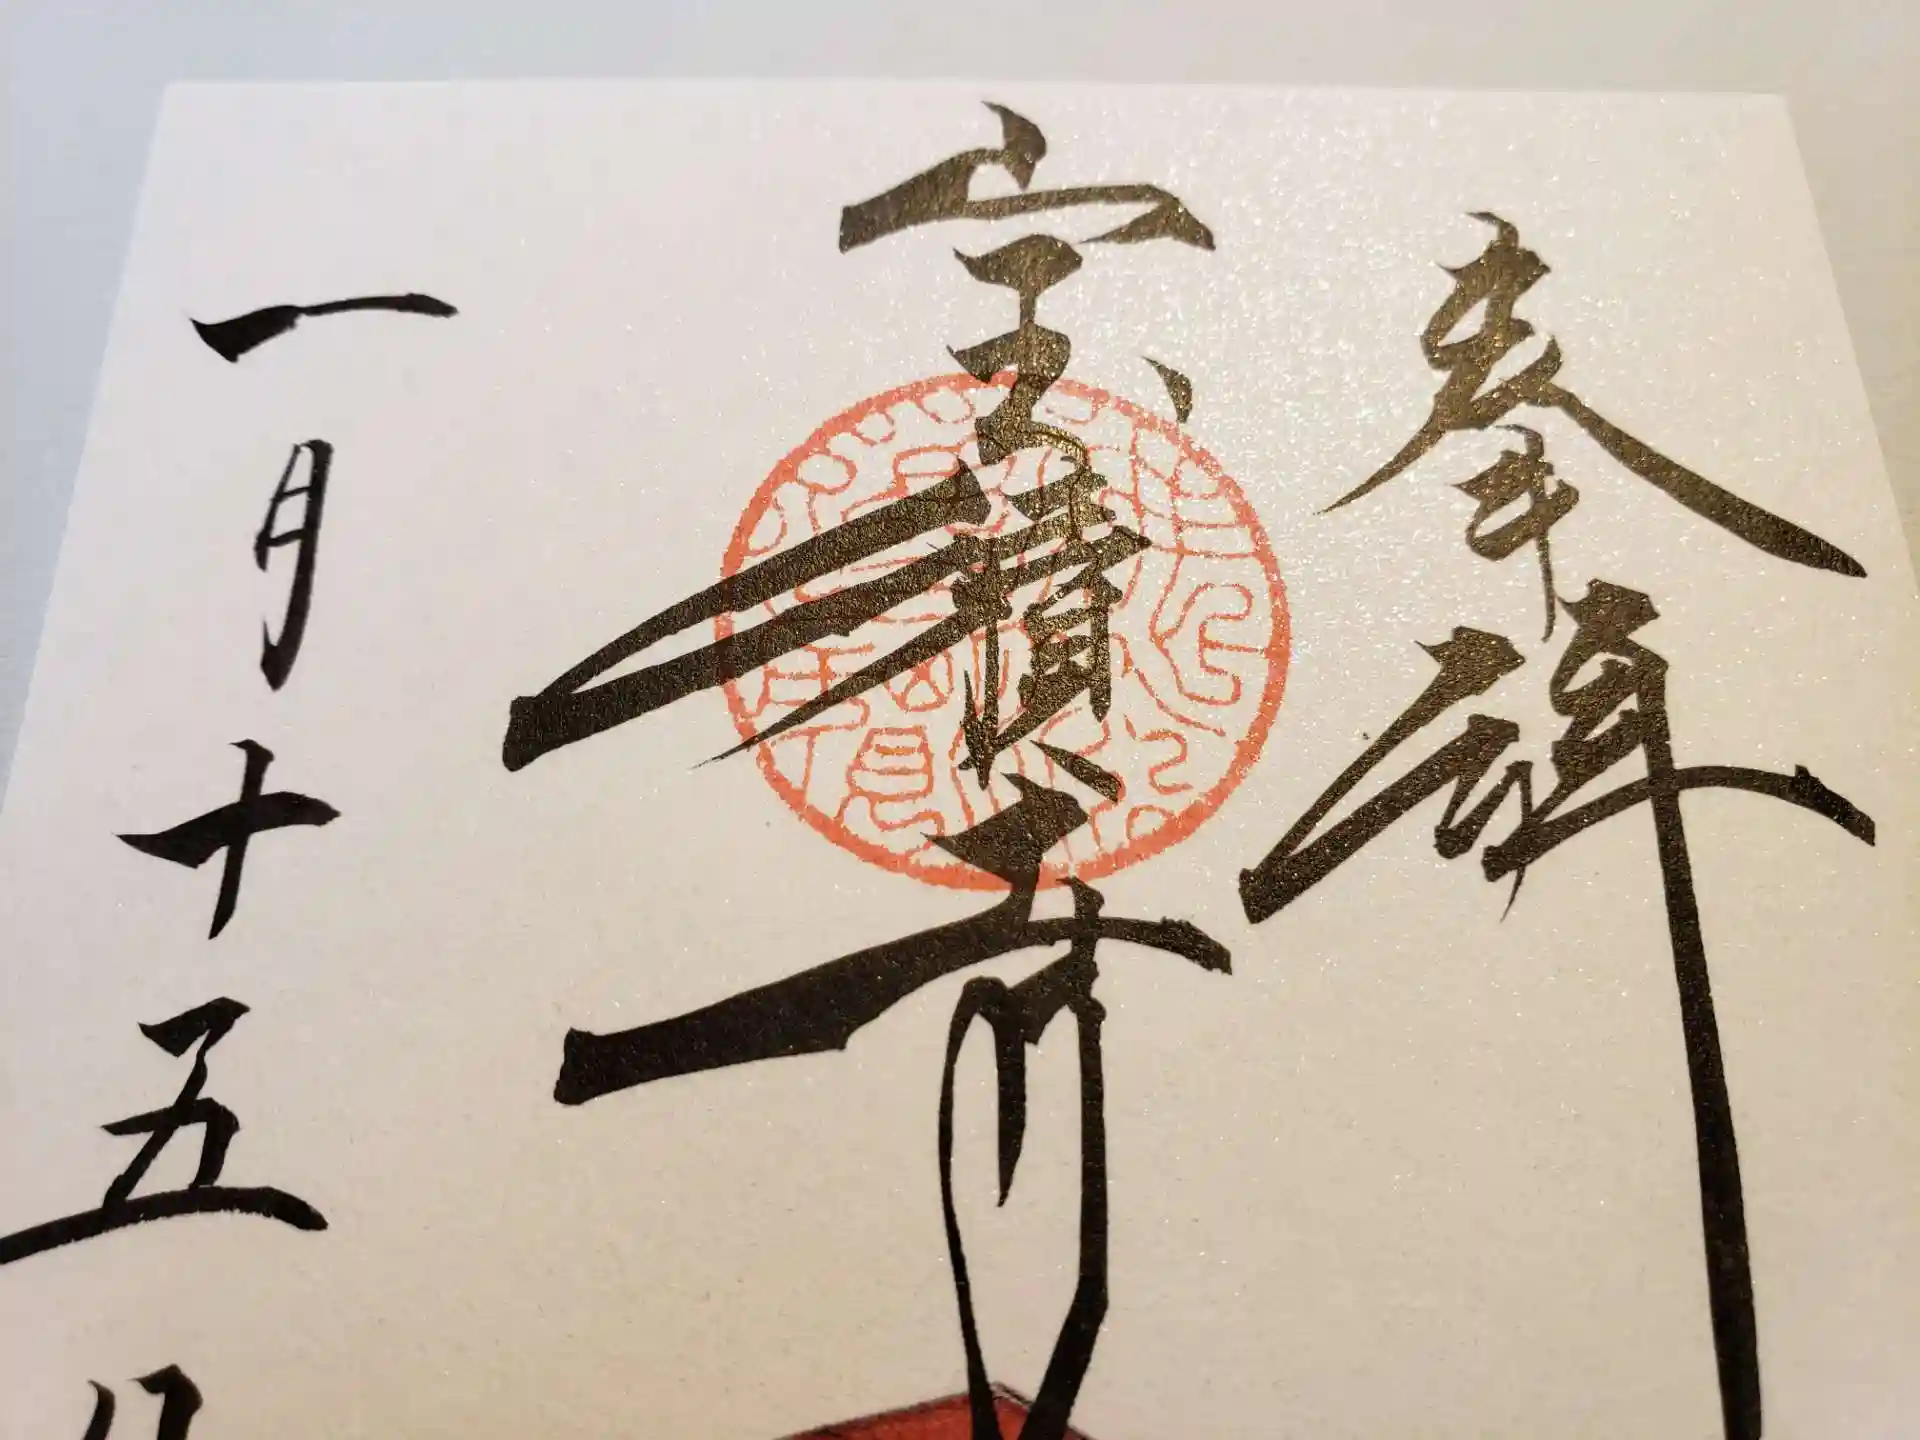 奉拝
宝積
一月十五日